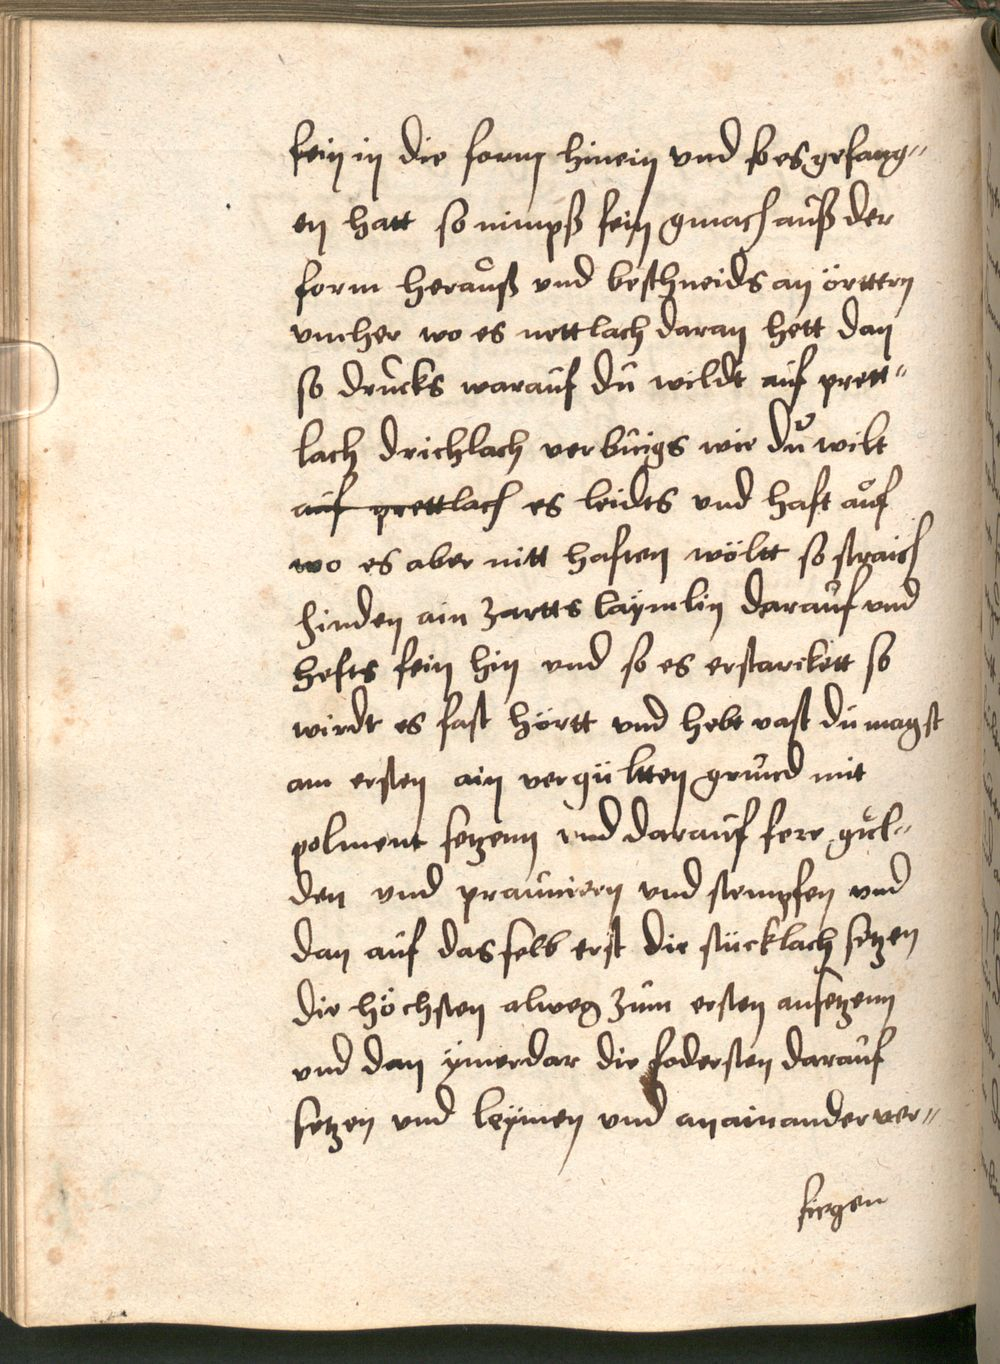 fein in die form hinein vnd so es gefang=
en hatt so nimpß fein gmach auß der
form herauß vnd beschneids an örttern
vmher wo es nettlach daran hett dan
so drucks warauf du wildt auf prett=
lach drichlach verbuigs wie du wilt
auf prettlach es leidts vnd haft auf
wo es aber nitt haften wöltt so straich
hinden ain zartts laÿmlin darauf vnd
hefts fein hin vnd so es erstarckett so
wirdt es fast hörtt vnd hebt vast du magst
am ersten ain vergültten grund mit
polment setzenn vnd darauf fere gul=
den vnd prauniern vnd stempfen vnd
dan auf das selb erst die stücklach setzen
die höchsten alweg zum ersten ansetzenn
vnd dan ÿmerdar die fodersten darauf
setzen vnd leÿmen vnd an ainander ver=
fiegen